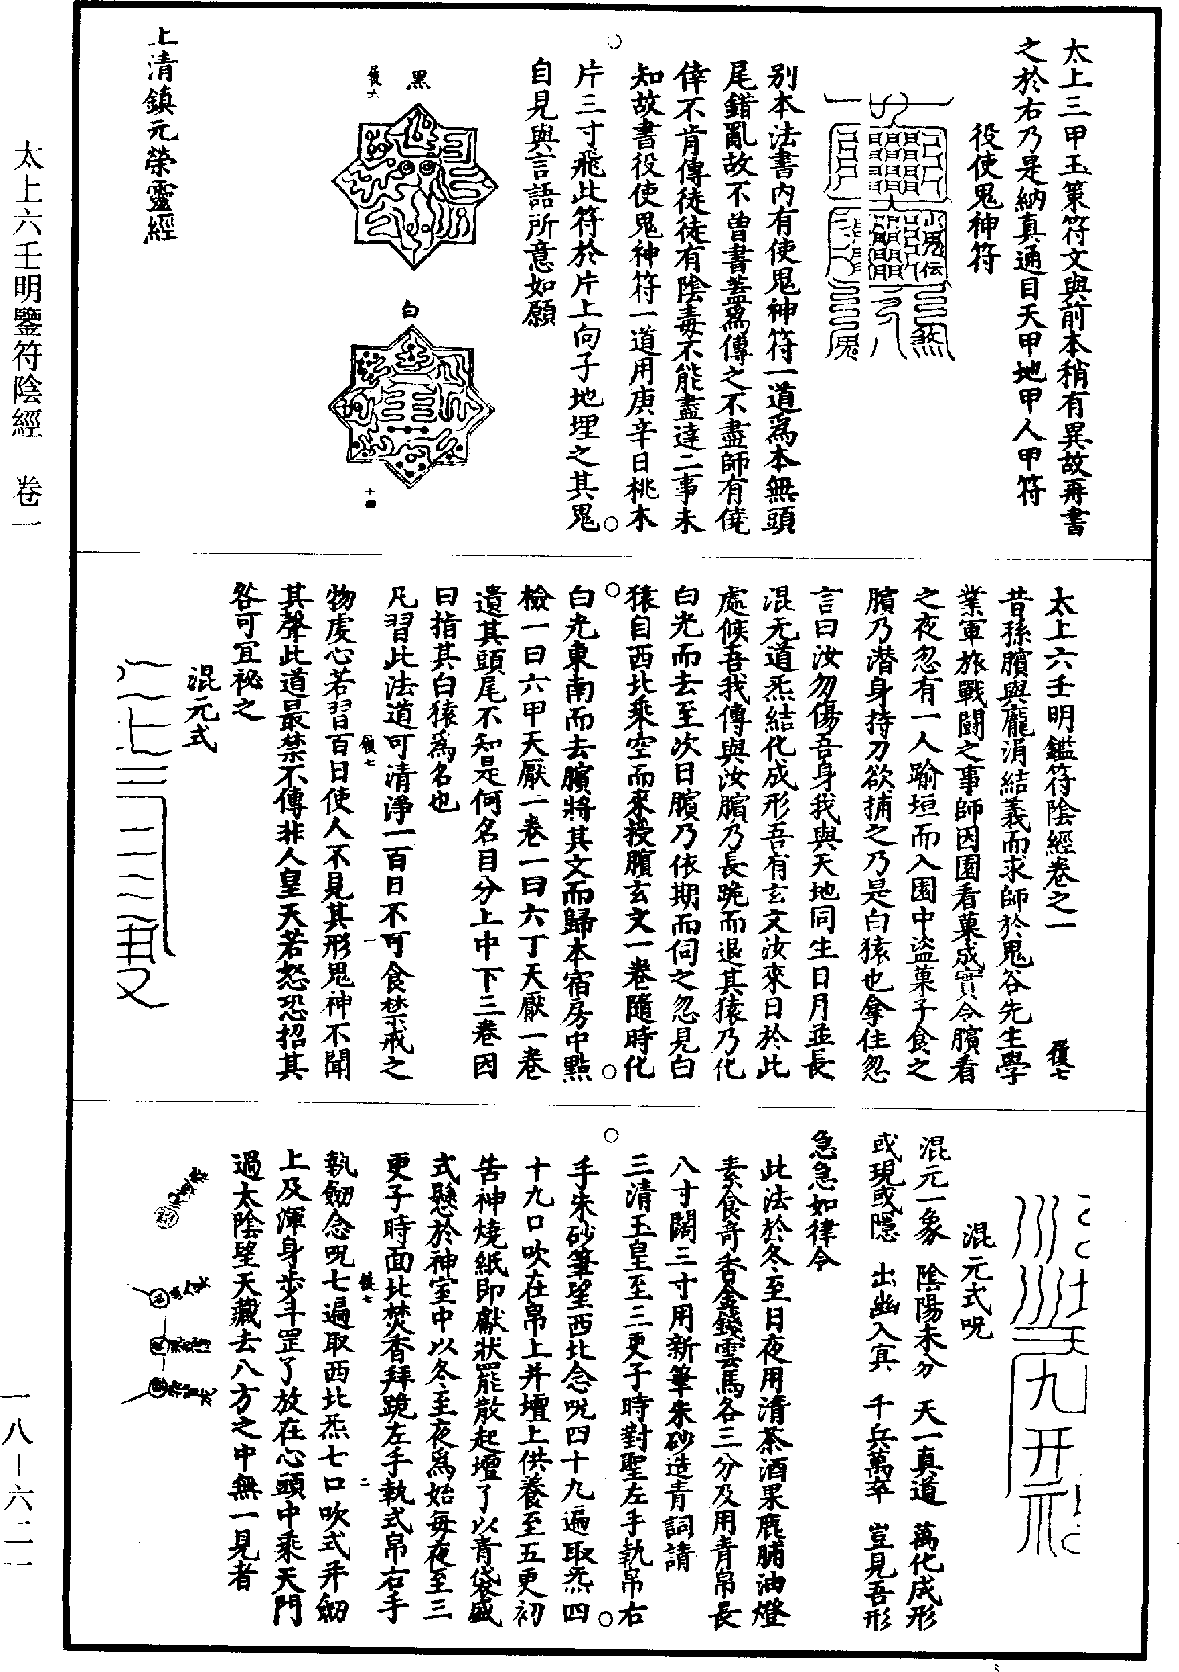 太上三甲玉策符文與前本稍有異故再書
之於右乃是納真通目天甲地甲人甲符
役使鬼神符
別本法書內有使鬼神符一道為本無頭
尾錯亂故不曾書蓋為傳之不盡師有僥
倖不肯傳徒徒有陰毒不能盡達二事未
知故書役使鬼神符一道用庚辛日桃木
片三寸飛此符於片上向子地埋之其鬼
自見與言語所意如願
黑
白
上清鎮元榮靈經
太上六壬明鑑符陰經卷之一
昔孫臏與龐涓結義而求師於鬼谷先生學
業軍旅戰鬪之事師因園看菓成實令臏看
之夜忽有一人踰垣而入園中盜菓子食之
臏乃潛身持刀欲捕之乃是白猿也拿住忽
言曰汝勿傷吾身我與天地同生日月並長
混无道炁結化成形吾有玄文汝來日於此
處候吾我傳與汝臏乃長跪而退其猿乃化
白光而去至次日臏乃依期而伺之忽見白
猿自西北乘空而來授臏玄文一卷隨時化
白光東南而去臏將其文而歸本宿房中點
檢一曰六甲天厭一卷一曰六丁天厭一卷
遺其頭尾不知是何名目分上中下三卷因
曰指其白猿為名也
凡習此法道可清淨一百日不可食禁戒之
物虔心若習百日使人不見其形鬼神不聞
其聲此道最禁不傳非人皇天若怒恐招其
咎可宜祕之
混元式
混元式呪
混元一象 陰陽未分 天一真道 萬化成形
或現或隱 出幽入冥 千兵萬卒 豈見吾形
急急如律令
此法於冬至日夜用清茶酒果鹿脯油燈
素食奇香金錢雲馬各三分及用青帛長
八寸闊三寸用新筆朱砂造青詞請
三清玉皇至三更子時對聖左手執帛右
手朱砂筆望西北念呪四十九遍取炁四
十九口吹在帛上并壇上供養至五更初
告神燒紙即獻狀罷散起壇了以青袋盛
式懸於神室中以冬至夜為始每夜至三
更子時面北焚香拜跪左手執式帛右手
執劒念呪七遍取西北炁七口吹式并劒
上及渾身步斗罡了放在心頭中乘天門
過太陰望天藏去八方之中無一見者
太上六壬明鑒符陰經 卷一
一八—六二一